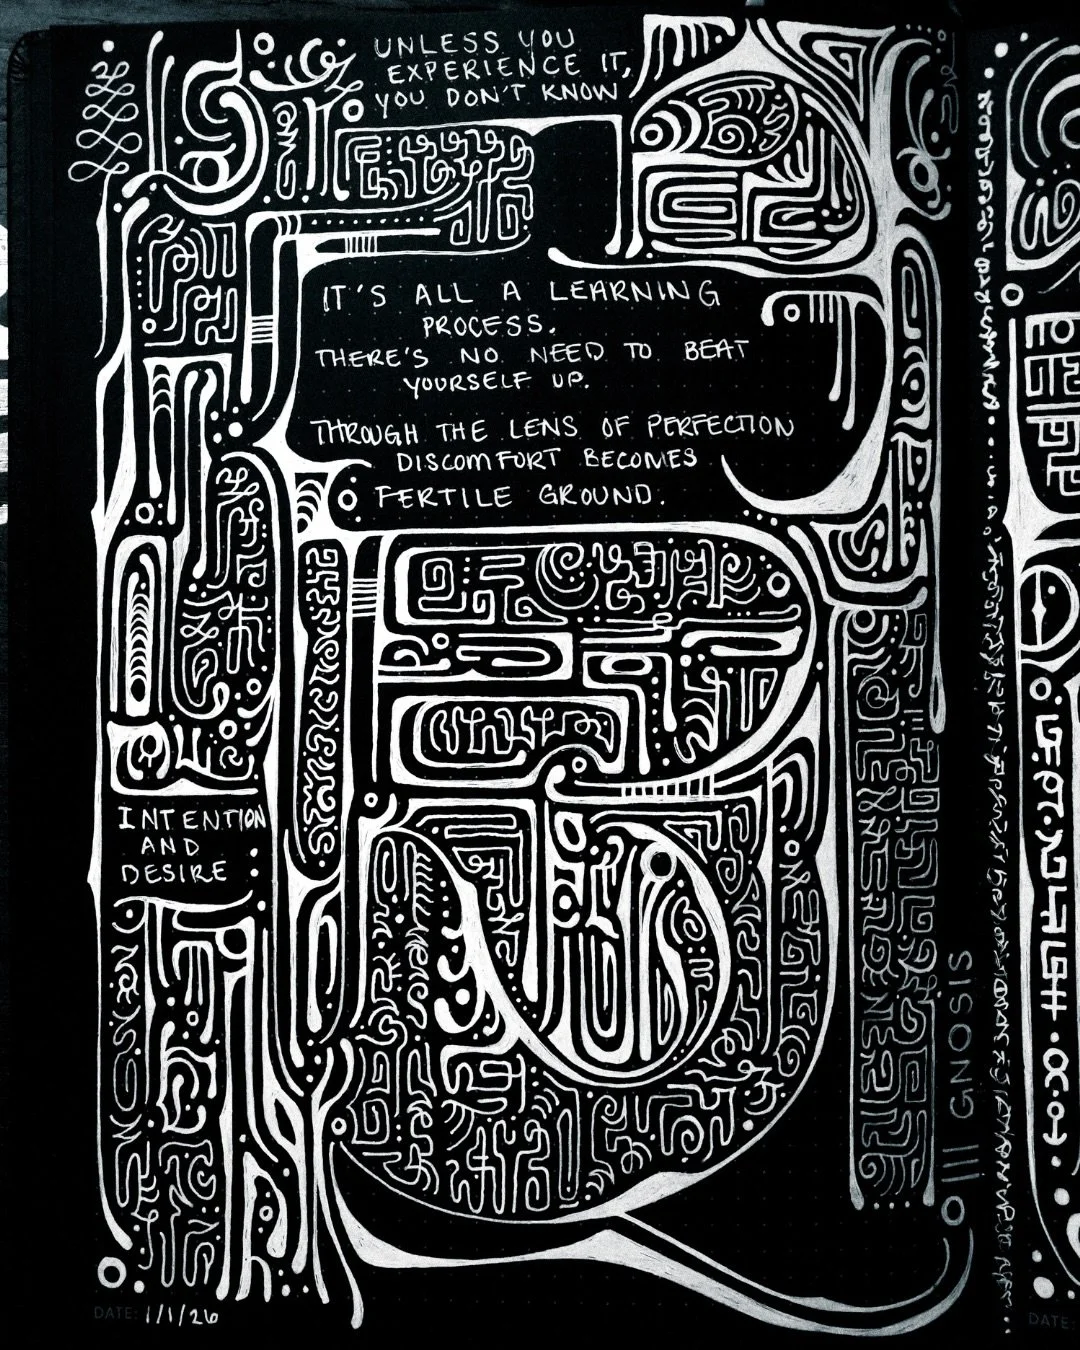 UNLESS YOU
EXPERIENCE IT,
YOU DON'T KNOW
IT'S ALL A LEARNING
PROCESS.
THERE'S NO NEED TO BEAT
YOURSELF UP.
THROUGH THE LENS OF PERFECTION
DISCOMFORT BECOMES
FERTILE GROUND.
INTENTION
AND
DESIRE
GNOSIS
DATE: 1/1/26
DATE: